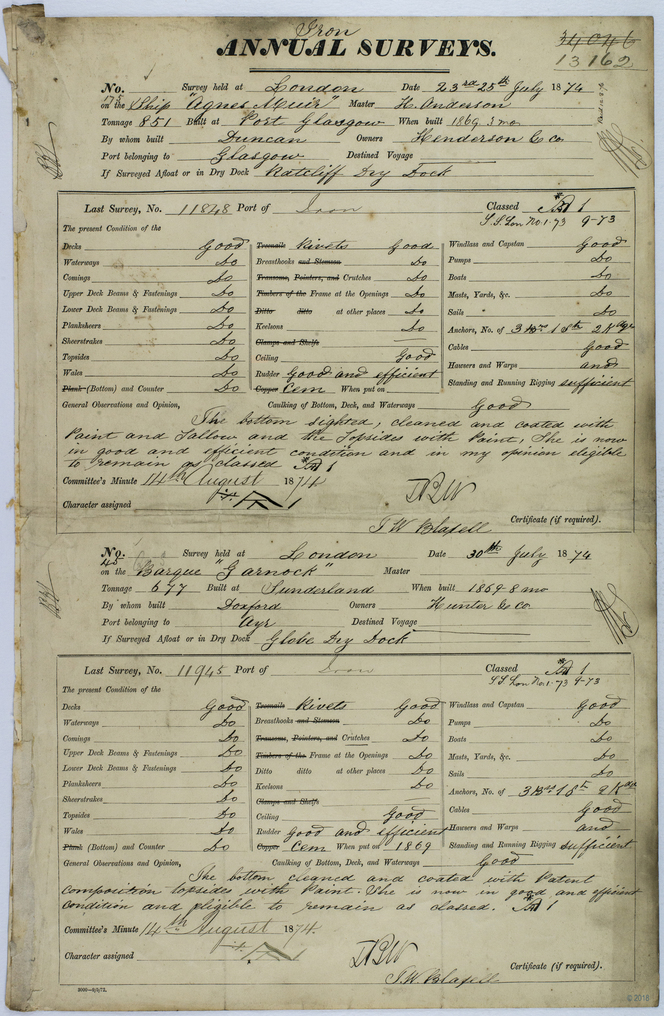 Iron
ANNUAL SURVEYS.
34046
13162
No. 75 Survey held at London Date 23rd 25th July 1874
on the Ship "Agnes Muir" Master H. Anderson
Tonnage 851 Built at Port Glasgow When built 1869. 3 mo
By whom built Duncan Owners Henderson & Co
Port belonging to Glasgow Destined Voyage
If Surveyed Afloat or in Dry Dock Ratcliff Dry Dock
Last Survey, No. 11848 Port of Iron Classed A 1
S.S. Lon No. 1-73 9-73
The present Condition of the
Decks Good Treenails Rivets Good Windlass and Capstan Good
Waterways Do Breasthooks and Stemson Do Pumps Do
Comings Do Transoms, Pointers, and Crutches Do Boats Do
Upper Deck Beams & Fastenings Do Timbers of the Frame at the Openings Do Masts, Yards, &c. Do
Lower Deck Beams & Fastenings Do Ditto ditto at other places Do Sails Do
Planksheers Do Keelsons Do Anchors, No. of 3 Bor 1 St 2 Kdges
Sheerstrakes Do Clamps and Shelfs Cables Good
Topsides Do Ceiling Good Hawsers and Warps and
Wales Do Rudder Good and efficient Standing and Running Rigging sufficient
Plank (Bottom) and Counter Do Copper Cem When put on
General Observations and Opinion, Caulking of Bottom, Deck, and Waterways Good
The bottom sighted, cleaned and coated with
Paint and Tallow, and the Topsides with Paint, She is now
in good and efficient condition and in my opinion eligible
to remain as classed A 1
Committee's Minute 14th August 1874
Character assigned A 1
T W Blaxell Certificate (if required).
No. 45 Survey held at London Date 30th July 1874
on the Barque "Garnock" Master
Tonnage 677 Built at Sunderland When built 1869-8 mo
By whom built Doxford Owners Hunter & Co
Port belonging to Ayr Destined Voyage
If Surveyed Afloat or in Dry Dock Globe Dry Dock
Last Survey, No. 11945 Port of Iron Classed A 1
S S Lon No. 1-73 9-73
The present Condition of the
Decks Good Treenails Rivets Good Windlass and Capstan Good
Waterways Do Breasthooks and Stemson Do Pumps Do
Comings Do Transoms, Pointers, and Crutches Do Boats Do
Upper Deck Beams & Fastenings Do Timbers of the Frame at the Openings Do Masts, Yards, &c. Do
Lower Deck Beams & Fastenings Do Ditto ditto at other places Do Sails Do
Planksheers Do Keelsons Do Anchors, No. of 3 Bor 1 St 2 Kdge
Sheerstrakes Do Clamps and Shelfs Cables Good
Topsides Do Ceiling Good Hawsers and Warps and
Wales Do Rudder Good and efficient Standing and Running Rigging sufficient
Plank (Bottom) and Counter Do Copper Cem When put on 1869
General Observations and Opinion, Caulking of Bottom, Deck, and Waterways Good
The bottom cleaned and coated with Patent
Composition topsides with Paint. She is now in good and efficient
condition and eligible to remain as classed. A 1
Committee's Minute 14th August 1874.
Character assigned A 1
T.W Blaxell Certificate (if required).
2000—9/9/72.
© 2018